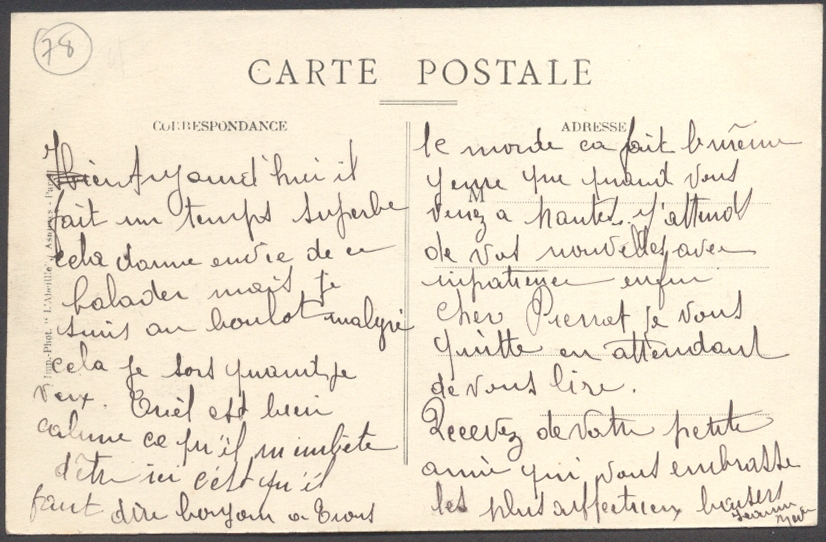 78
CARTE POSTALE
CORRESPONDANCE
Aujourd'hui il
fait un temps superbe
cela donne envie de ce
balader mais je
suis au boulot malgré
cela je sors quant je
veux. est bien
calme ce qu'il m'embête
d'être ici c'est qu'il
faut dire bonjour a tous
ADRESSE
M
le monde ca fait le même
que quand vous
venez a J'attend
de vos nouvelles avec
impatience enfin
cher Pierrot je vous
quitte en attendant
de vous lire.
Recevez de votre petite
amie qui vous embrasse
les plus affectueux baisers
Imp.-Phot. "L'Abeille", Asnières - Paris